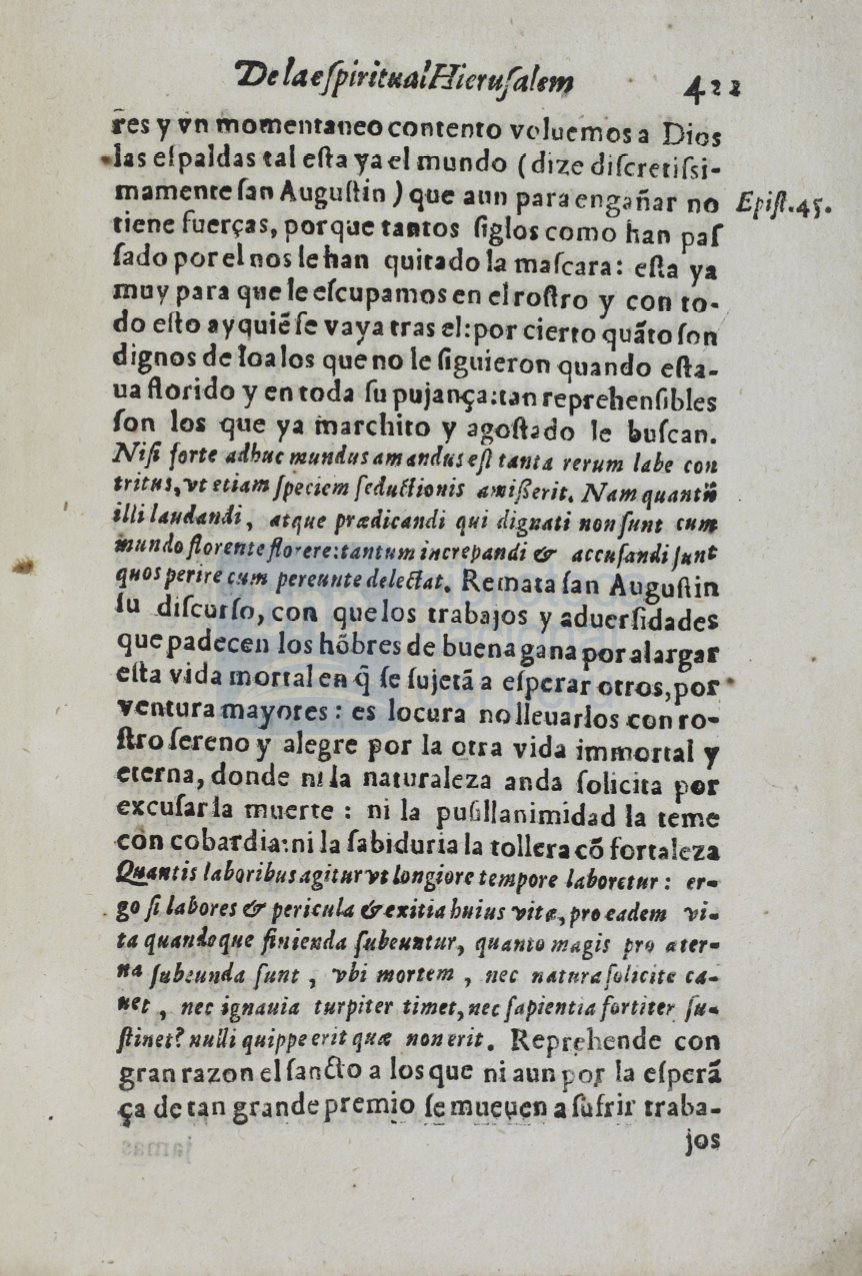 De la eſpiritual Hieruſalem 422
r̃es y vn momentaneo contento voluemos a Dios
las eſpaldas tal eſta ya el mundo (dize diſcretiſsi-
mamente ſan Auguſtin) que aun para engañar no Epiſt.45.
tiene fuerças, porque tantos ſiglos como han paſ
ſado por el nos le han quitado la maſcara: eſta ya
muy para que le eſcupamos en el roſtro y con to-
do eſto ay quiẽ ſe vaya tras el: por cierto quãto ſon
dignos de loa los que no le ſiguieron quando eſta-
ua florido y en toda ſu pujança: tan reprehenſibles
ſon los que ya marchito y agoſtado le buſcan.
Niſi forte adhuc mundus amandus eſt tanta rerum labe con
tritus, vt etiam ſpeciem ſeductionis amißerit. Nam quantũ
illi laudandi, atque prædicandi qui dignati non ſunt cum
mundo florente florere: tantum increpandi & accuſandi ſunt
quos perire cum pereunte delectat. Remata ſan Auguſtin
ſu diſcurſo, con que los trabajos y aduerſidades
que padecen los hõbres de buena gana por alargar
eſta vida mortal en q̃ ſe ſujetã a eſperar otros, por
ventura mayores: es locura no lleuarlos con ro-
ſtro ſereno y alegre por la otra vida immortal y
eterna, donde ni la naturaleza anda ſolicita por
excuſar la muerte: ni la puſillanimidad la teme
con cobardia: ni la ſabiduria la tollera cõ fortaleza
Quantis laboribus agitur vt longiore tempore laboretur: er-
go ſi labores & pericula & exitia huius vitæ, pro eadem vi-
ta quandoque finienda ſubeuntur, quanto magis pro æter-
na ſubeunda ſunt, vbi mortem, nec natura ſolicite ca-
uet, nec ignauia turpiter timet, nec ſapientia fortiter ſu-
ſtinet? nulli quippe erit quæ non erit. Reprehende con
gran razon el ſancto a los que ni aun por la eſperã
ça de tan grande premio ſe mueuen a ſufrir traba-
jos